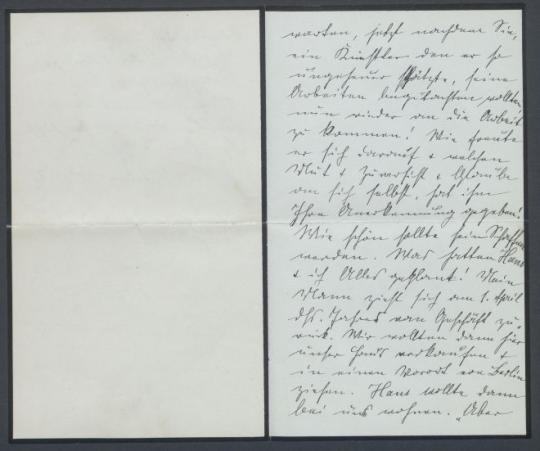 warten, jetzt nachdem Sie,
ein Künstler den er so
ungeheuer schätzte, seine
Arbeiten begutachten wollten
nun wieder an die Arbeit
zu kommen! Wie freute
er sich darauf + welchen
Mut + Zuversicht + Glaube
an sich selbst, hat ihm
Ihre Anerkennung gegeben!
Wie schön sollte sein Schaffen
werden. Was hatten Hans
+ ich Alles geplant! Mein
Mann zieht sich am 1. April
ds. Jahres vom Geschäft zu-
rück. Wir wollten dann hier
unser Haus verkaufen +
in einen Vorort von Berlin
ziehen. Hans wollte dann
bei uns wohnen. „Aber